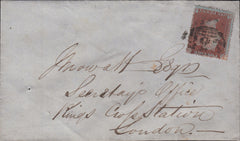 J Mowatt Esqre
Secretary's Office
Kings Cross Station
London